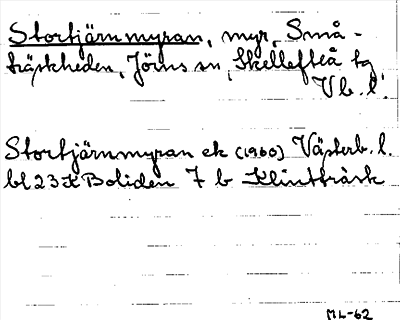 Stortjärnmyran, myr, Små-
träskheden, Jörns sn, Skellefteå tg
Vb. l.
Stortjärnmyran ek (1960) Västerb. l.
bl 23 K Boliden 7 b Klintträsk
ML-62